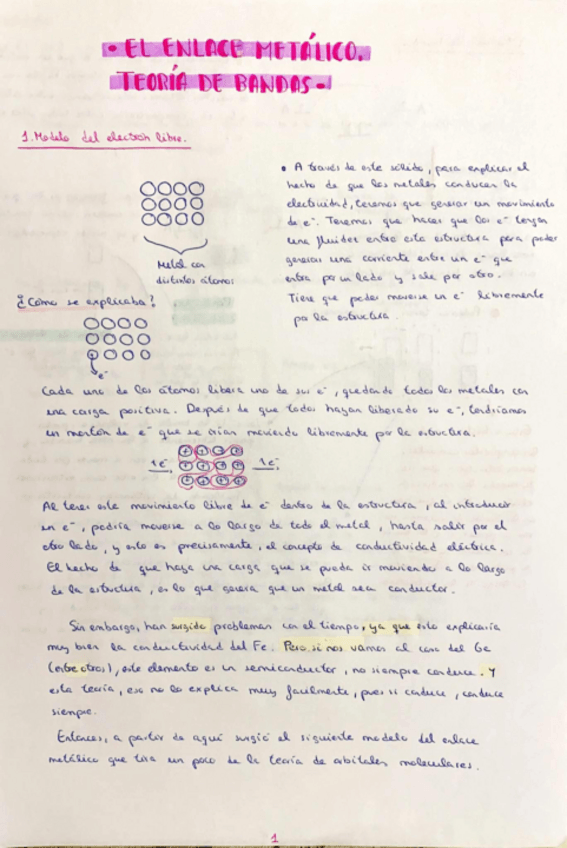 • EL ENLACE METÁLICO.
TEORÍA DE BANDAS •
1. Modelo del electrón libre.
• A través de este sólido, para explicar el
hecho de que los metales conducen la
electricidad, tenemos que generar un movimiento
de e⁻. Tenemos que hacer que los e⁻ tengan
una fluidez entre esta estructura para poder
generar una corriente entre un e⁻ que
entra por un lado y sale por otro.
Tiene que poder moverse un e⁻ libremente
por la estructura.
Metal con
distintos átomos
¿Cómo se explicaba?
e⁻
Cada uno de los átomos libera uno de sus e⁻, quedando todos los metales con
una carga positiva. Después de que todos hayan liberado su e⁻, tendríamos
un montón de e⁻ que se irían moviendo libremente por la estructura.
1e⁻ + + + + 1e⁻
+ + + +
+ + + +
Al tener este movimiento libre de e⁻ dentro de la estructura, al introducir
un e⁻, podría moverse a lo largo de todo el metal, hasta salir por el
otro lado, y esto es precisamente, el concepto de conductividad eléctrica.
El hecho de que haya una carga que se pueda ir moviendo a lo largo
de la estructura, es lo que genera que un metal sea conductor.
Sin embargo, han surgido problemas con el tiempo, ya que esto explicaría
muy bien la conductividad del Fe. Pero si nos vamos al caso del Ge
(entre otros), este elemento es un semiconductor, no siempre conduce. Y
esta teoría, eso no lo explica muy fácilmente, pues si conduce, conduce
siempre.
Entonces, a partir de aquí surgió el siguiente modelo del enlace
metálico que tira un poco de la teoría de orbitales moleculares.
1